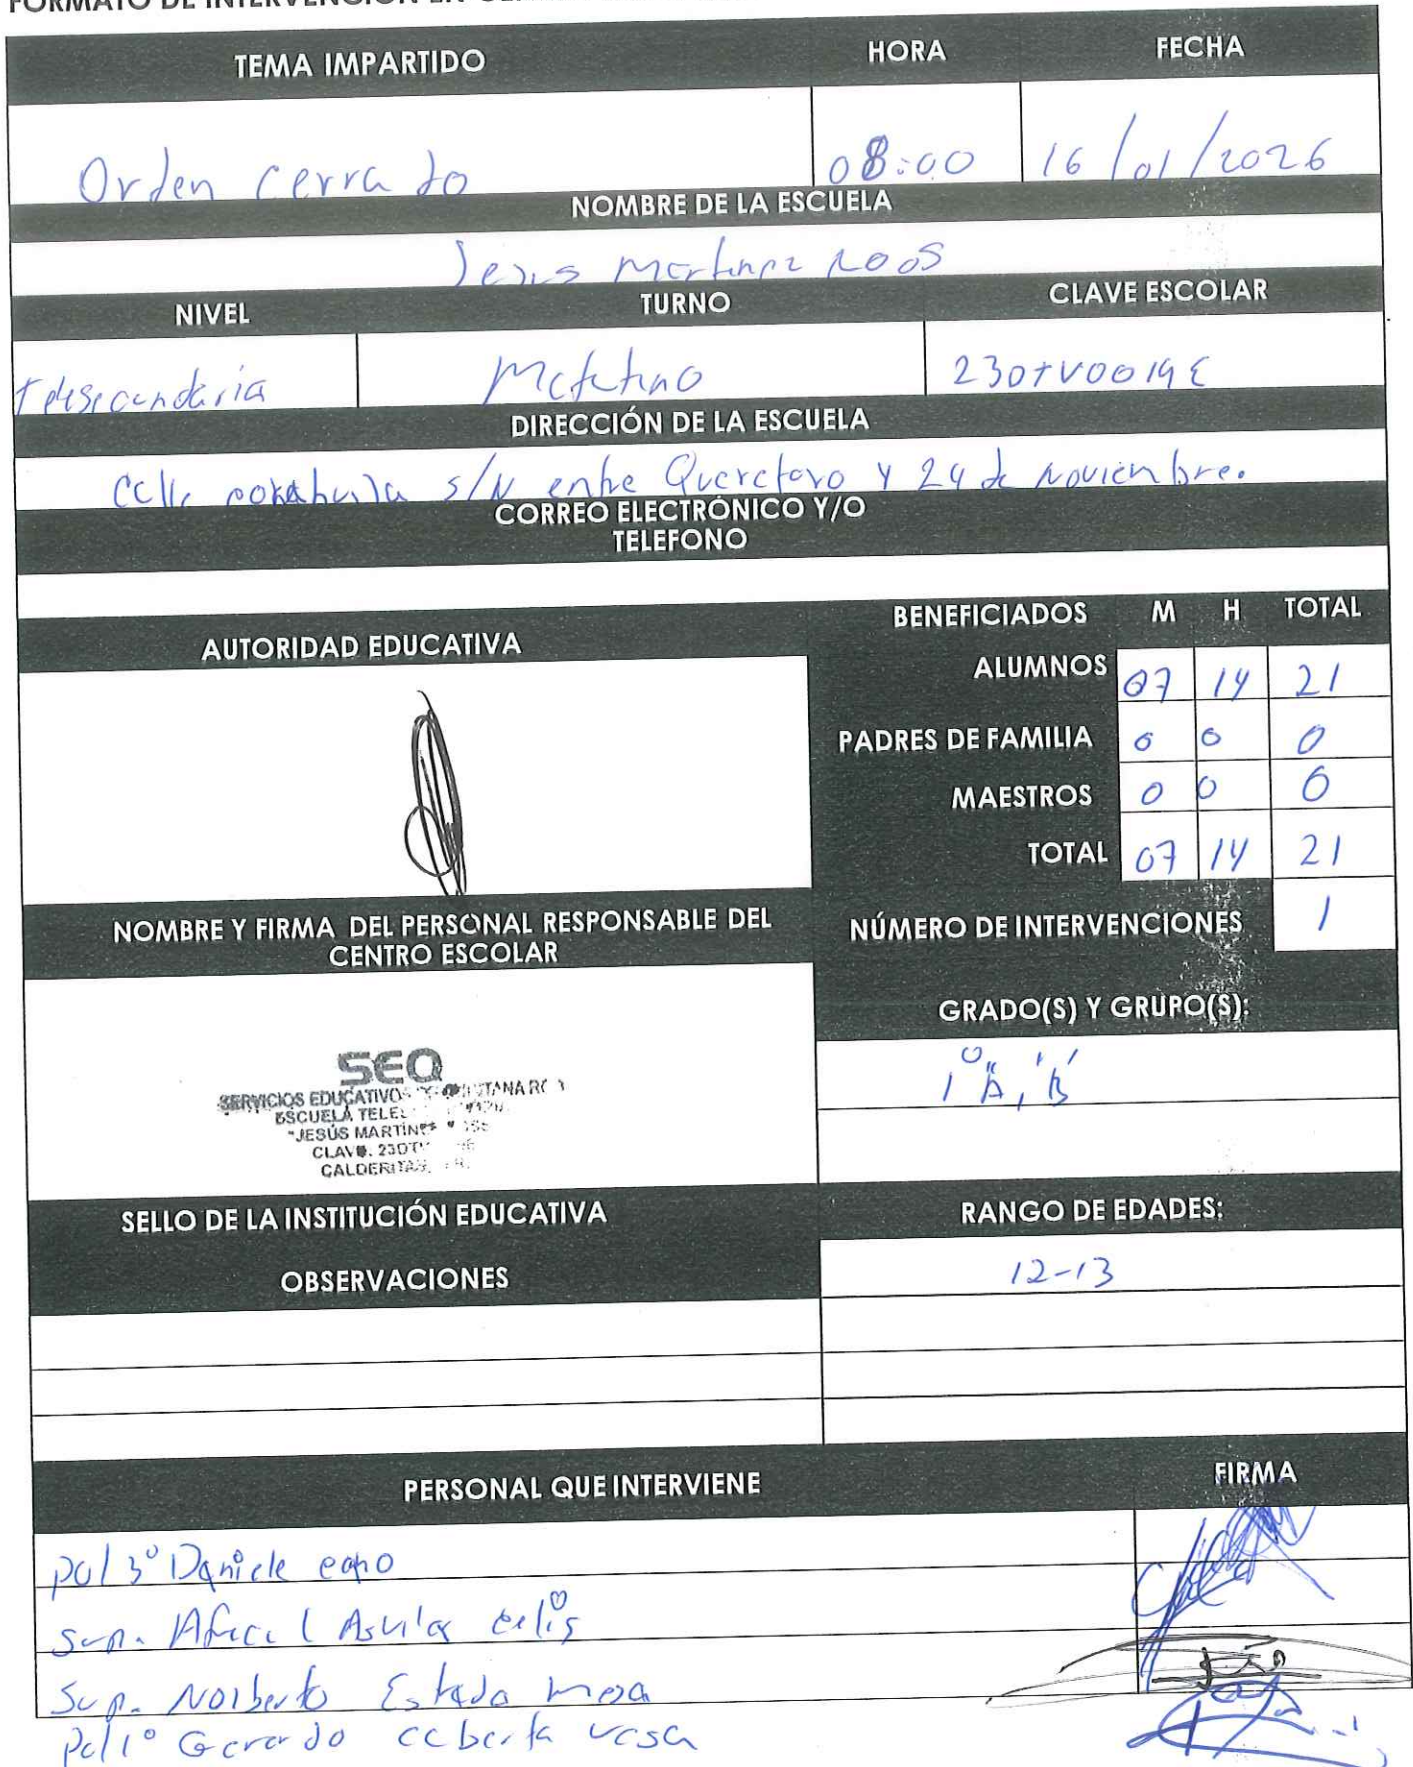 FORMATO DE INTERVENCIÓN EN
TEMA IMPARTIDO HORA FECHA
Orden cerrado 08:00 16/01/2026
NOMBRE DE LA ESCUELA
Jesus Martinez Roos
NIVEL TURNO CLAVE ESCOLAR
Telesecundaria Matutino 230TV0019E
DIRECCIÓN DE LA ESCUELA
Calle s/N entre Queretaro y 24 de Noviembre.
CORREO ELECTRÓNICO Y/O
TELEFONO
AUTORIDAD EDUCATIVA
BENEFICIADOS M H TOTAL
ALUMNOS 07 14 21
PADRES DE FAMILIA 0 0 0
MAESTROS 0 0 0
TOTAL 07 14 21
NOMBRE Y FIRMA DEL PERSONAL RESPONSABLE DEL
CENTRO ESCOLAR
NÚMERO DE INTERVENCIONES 1
GRADO(S) Y GRUPO(S):
1° "A", "B"
SEQ
SERVICIOS EDUCATIVOS QUINTANA ROO
ESCUELA
"JESÚS MARTÍNEZ
CLAVE.
CALDERITAS,
SELLO DE LA INSTITUCIÓN EDUCATIVA
RANGO DE EDADES:
12-13
OBSERVACIONES
PERSONAL QUE INTERVIENE FIRMA
pol 3° Daniele
Sup. Aguilar Celis
Sup. Norberto Estada
Pol 1° Gerardo